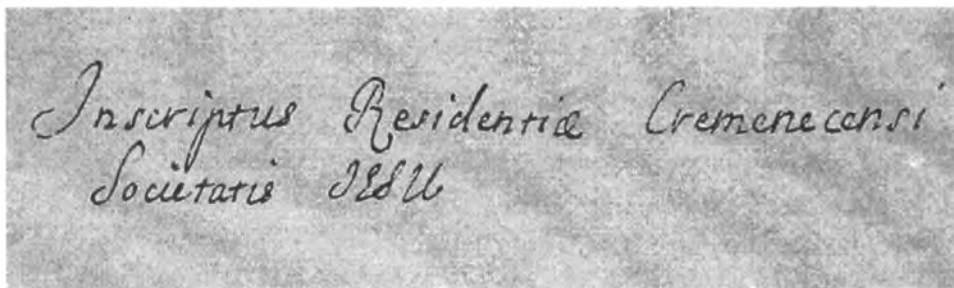 Inscriptus Residentiæ Cremenecensi
Societatis JESU